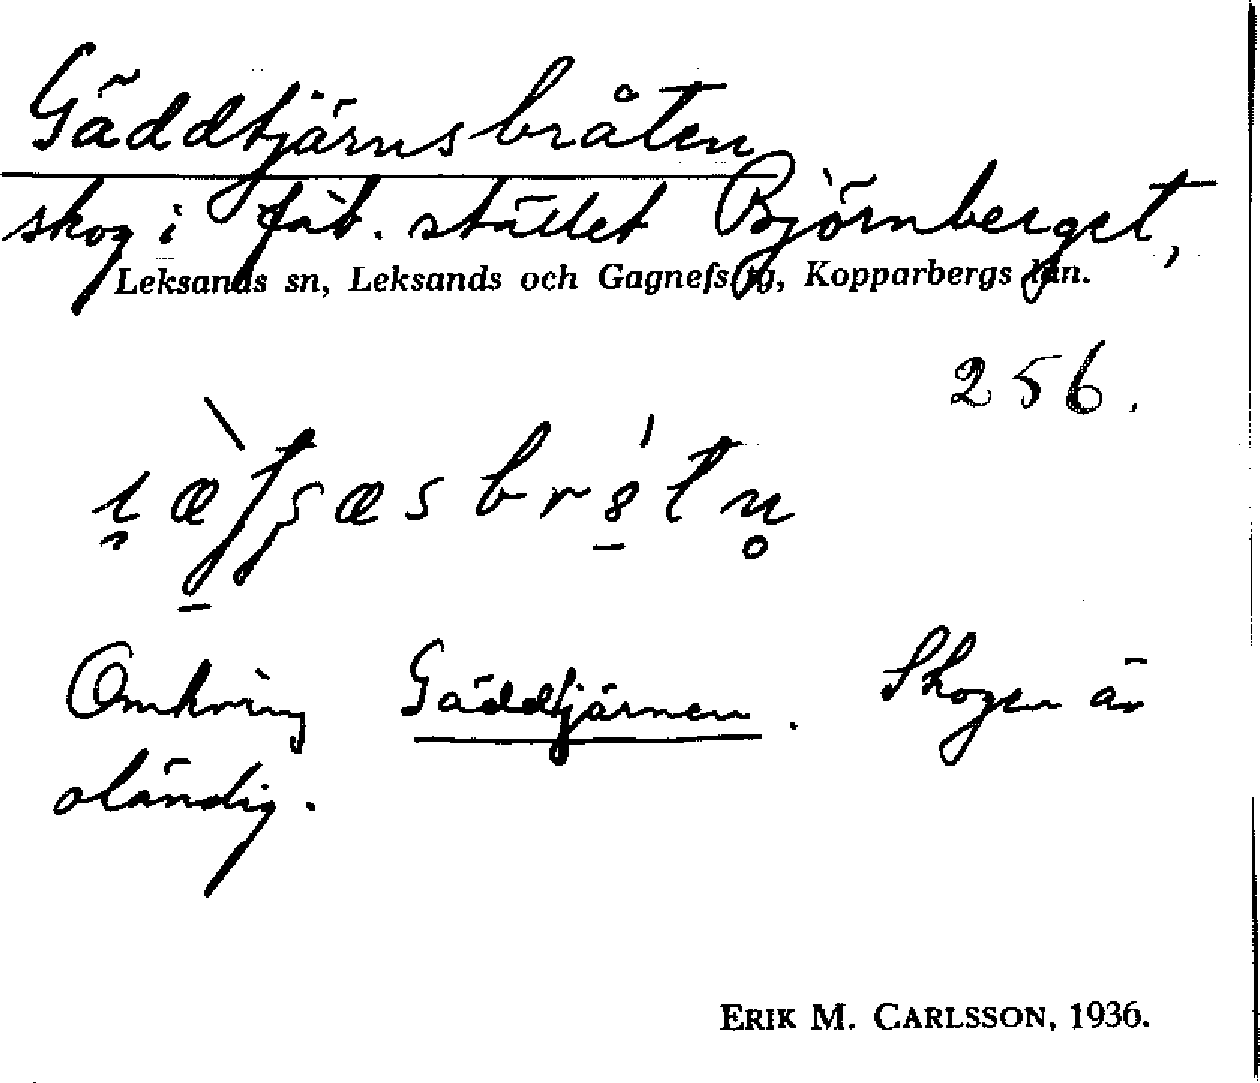 Gäddtjärnsbråten
skog i fäb. stället Björnberget,
Leksands sn, Leksands och Gagnefs tg, Kopparbergs län.
256.
Omkring Gäddtjärnen. Skogen är
oländig.
ERIK M. CARLSSON, 1936.